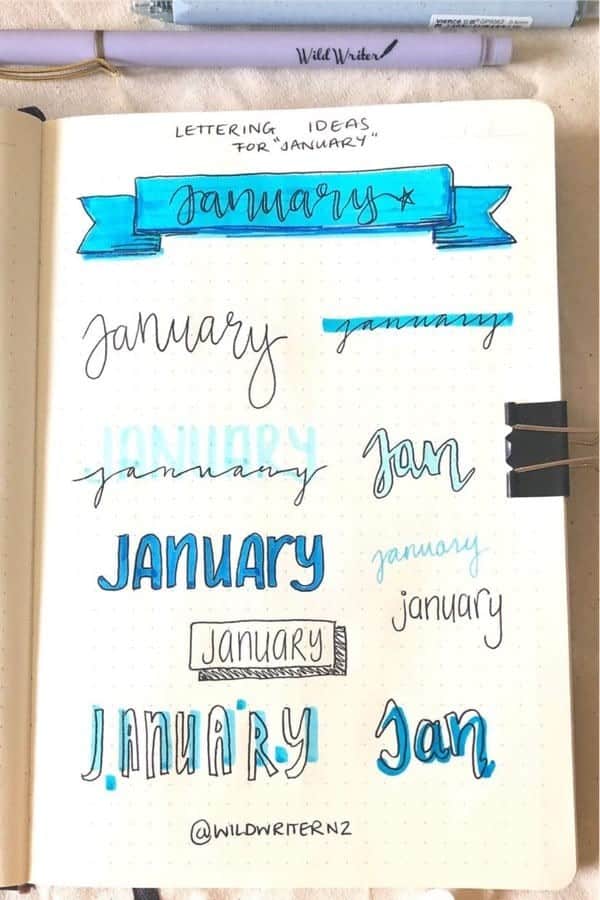 WildWriter
LETTERING IDEAS
FOR "JANUARY"
January
January
january
JANUARY
january
Jan
JANUARY
january
january
JANUARY
JANUARY
Jan
@WILDWRITERNZ